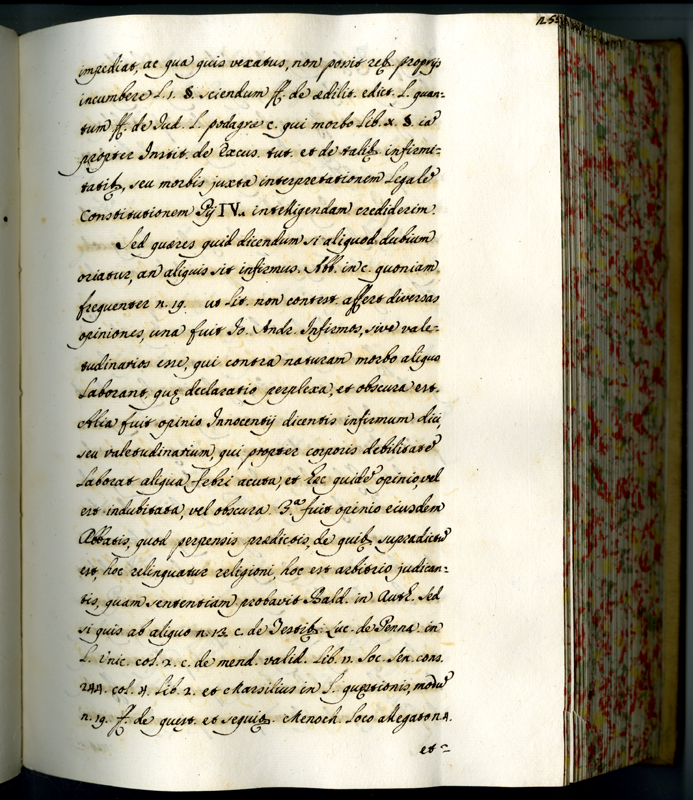 impediat, ac qua quis vexatus, non possit reb. proprijs
incumbere L. 1. §. sciendum ff. de ædilit. edict. L. quan-
tum ff. de Jud. L. podagræ c. qui morbo Lib. x. §. ia
propter Instit. de Excus. tut. et de talib. infirmi-
tatib., seu morbis juxta interpretationem Legale
Constitutionem Pij IV. intelligendam crediderim.
Sed quæres quid dicendum si aliquod dubium
oriatur, an aliquis sit infirmus. Abb. in c. quoniam
frequenter n. 19. ut Lit. non contest. affert diversas
opiniones, una fuit Jo. Andr. Infirmos, sive vale-
tudinarios esse, qui contra naturam morbo aliquo
Laborant, quę declaratio perplexa, et obscura est.
Alia fuit opinio Innocentij dicentis infirmum dici,
seu valetudinarium, qui propter corporis debilitate
Laborat aliqua febri acuta, et hec quide opinio, vel
est indubitata, vel obscura. 3.a fuit opinio eiusdem
Abbatis, quod perpensis prædictis, de quib. supradictu
est, hoc relinquatur religioni, hoc est arbitrio judican-
tis, quam sententiam probavit Bald. in Auth. Sed
si quis ab aliquo n. 13. c. de Testib. Luc. de Penna in
L. Unic. col. 2. c. de mend. valid. Lib. 11. Soc. Sen. cons.
244. col. 4. Lib. 2. et Marsilius in L. quęstionis, modu
n. 19. ff. de quest. et sequib. Menoch. loco allegato n. 4.
et